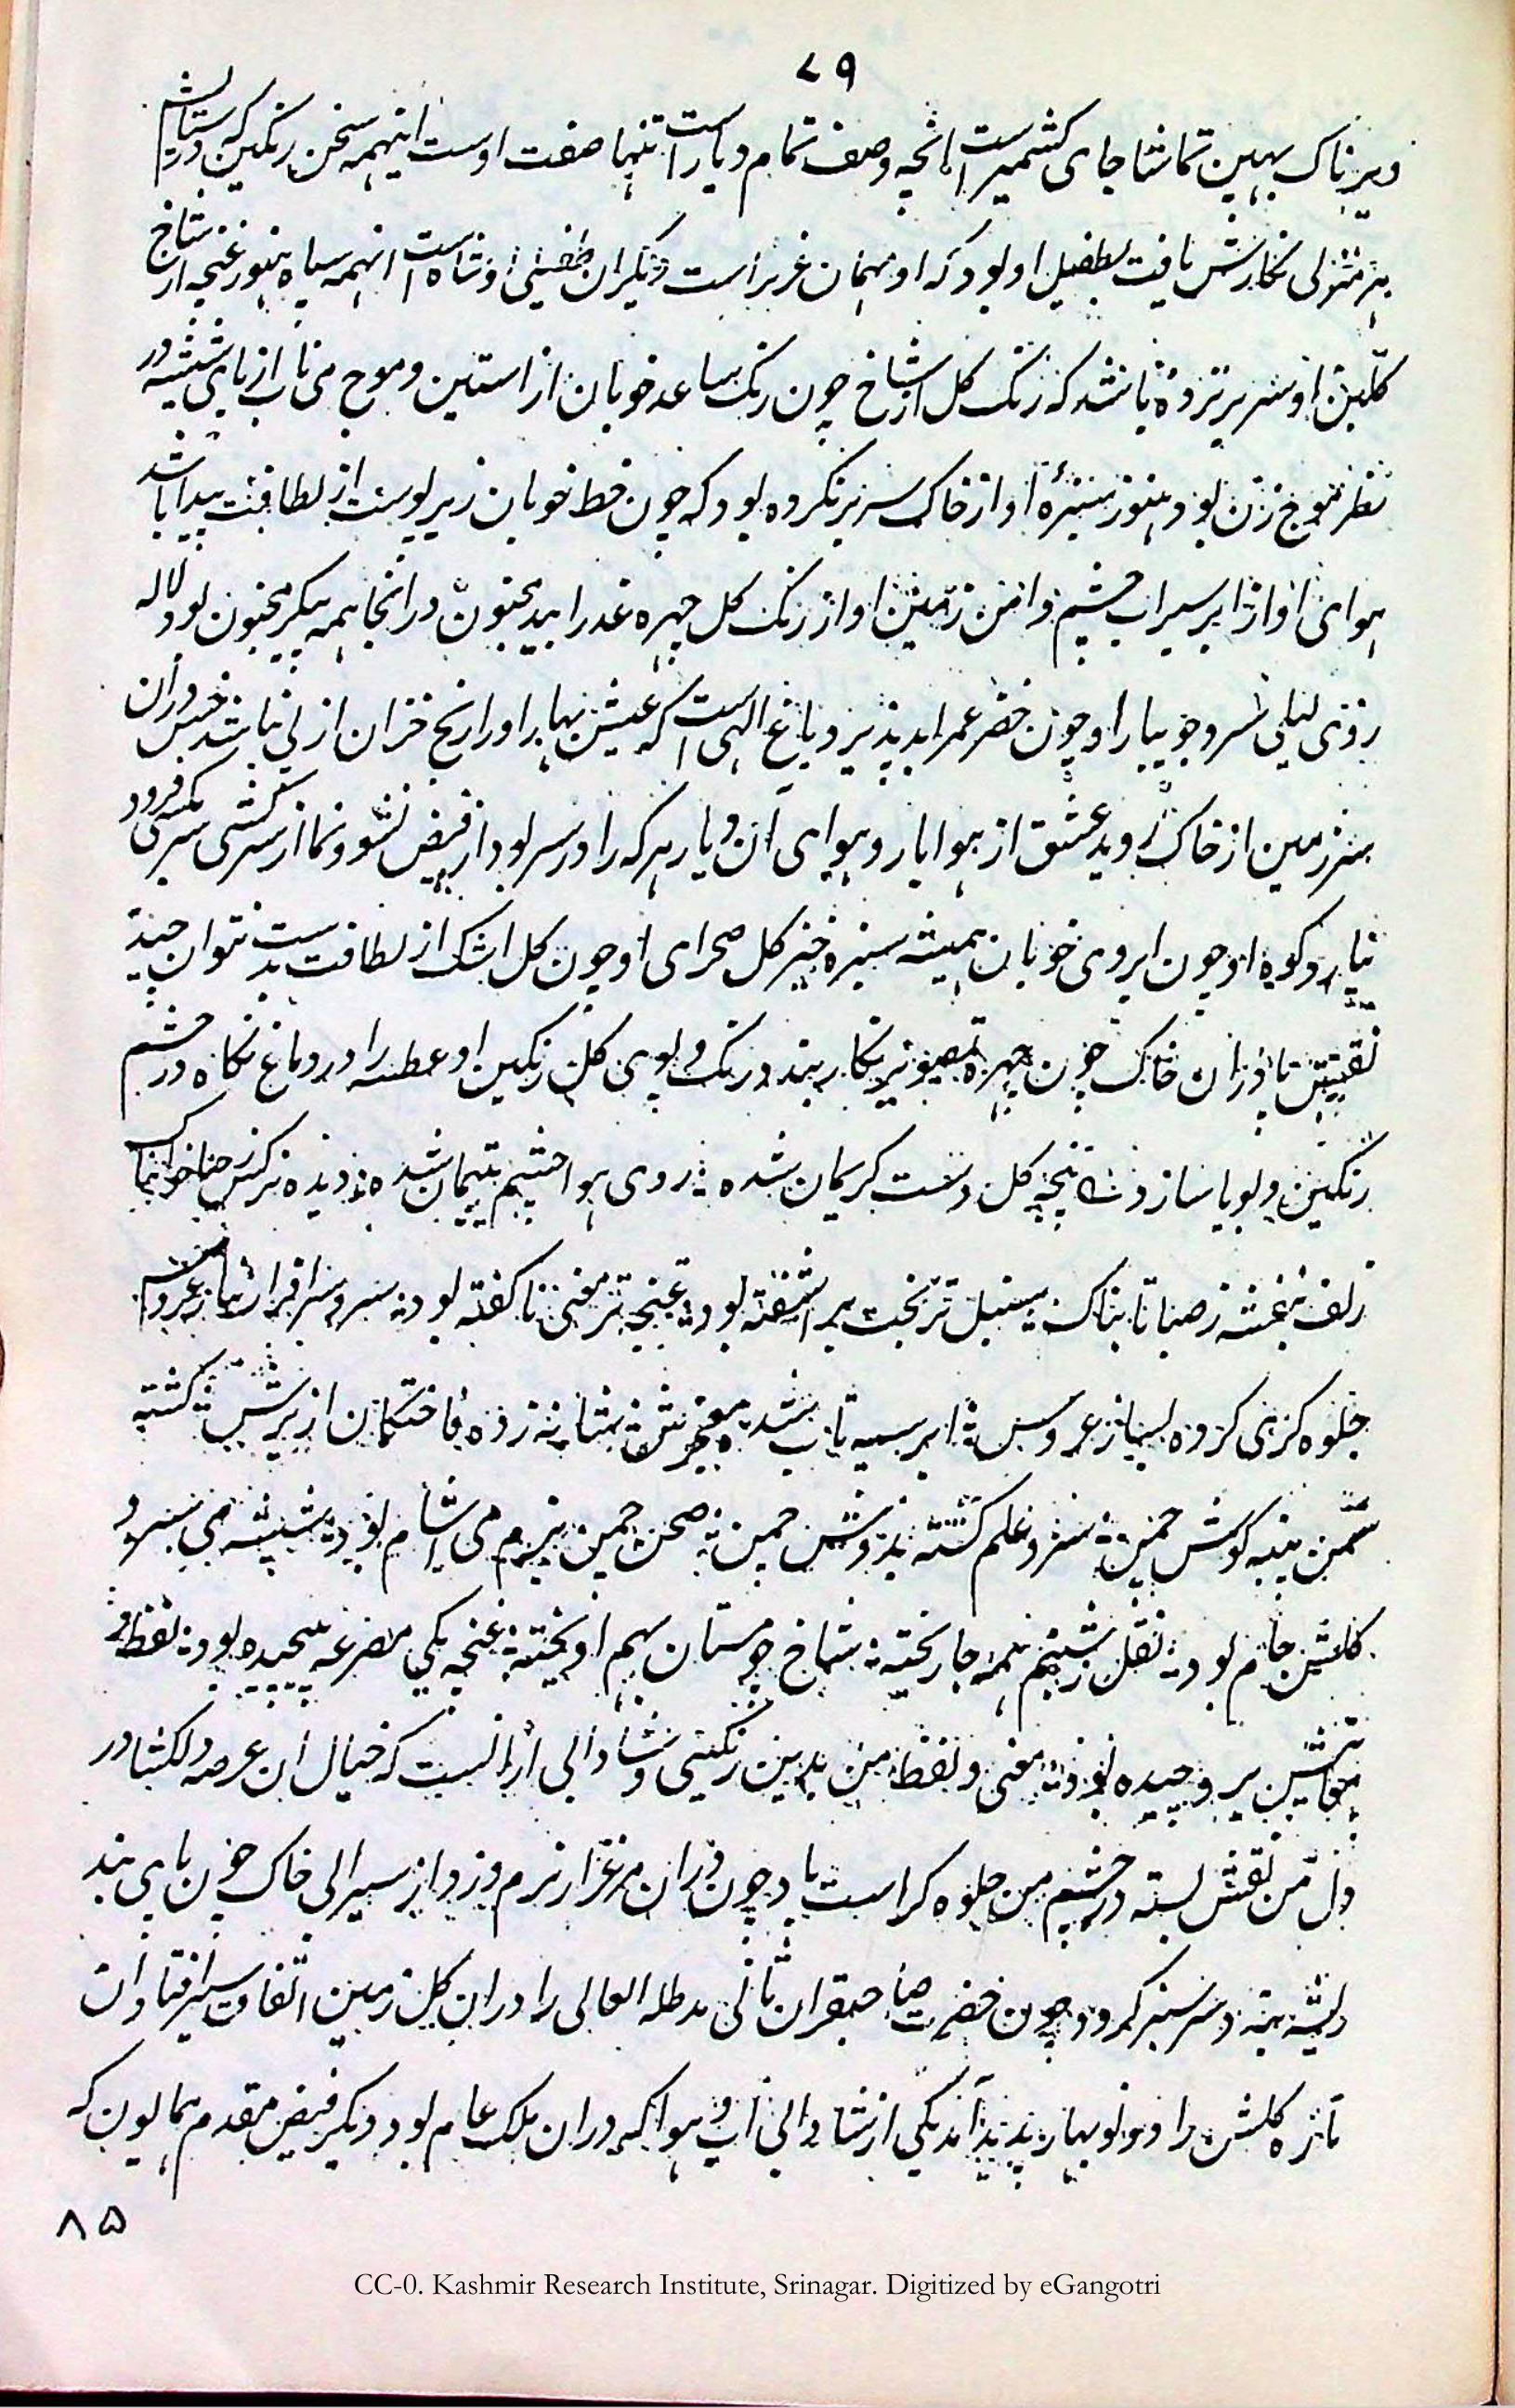 ۷۹
ویرناک بهین تماشا جای کشمیرست انچه وصف تمام دیار است تنها صفت اوست اینهمه سخن رنگین که در ستایش
هر منزلی نگارش یافت بطفیل او بود که او مهمان عزیز است دیگران طفیلی او شاه است انهمه سپاه هنوز غنچه از شاخ
گلبن او سر بر نزده باشد که رنگ گل از شاخ چون رنگ ساعد خوبان از استین و موج می ناب از نای شیشه در
نظر موج زن بود و هنوز سبزهٔ او از خاک سر بر نکرده بود که چون خط خوبان زیر پوست از لطافت پیدا باشد
هوای او از ابر سیراب چشم و امن زمین او از رنگ گل چهره عذرا بید مجنون در انجا همه پیکر مجنون بود و لاله
روی لیلی سرو جویبار او چون خضر عمر ابد پذیرد باغ الهی است که عیش بهار او را رنج خزان از پی نباشد خس در ان
سرزمین از خاک روید عشق از هوا بارد هوای آن دیار هر که را در سر بود از فیض نشو و نما از سرکشی سر بکس فرود
نیارد کوه او چون ابروی خوبان همیشه سبزه خیز گل صحرای او چون گل اشک از لطافت بدست نتوان چید
نقش تا در ان خاک چون چهره تصویر نگار بندد رنگ و بوی گل رنگین او عطسه را در دماغ نگاه در چشم
رنگین و بویا سازد پنجه گل دست کریمان شده روی هوا چشم یتیمان شده دیده نرگس ز صبا خوابناک
زلف بنفشه ز صبا تابناک سنبل تر بخت بر اشفته بود غنچه تر معنی ناگفته بود سرو سرافراز
جلوه گری کرده بساز عروس ابر سیه تاب شانه زده فاختگان از برش گشته
سمن پنبه گوش چمن سرو علم گشته بدوش چمن صحن چمن بزم می اشام بود شیشه می سرو
گلشن جام بود نقل ز شبنم همه جا ریخته شاخ چو مستان بهم اویخته غنچه یکی مصرعه پیچیده بود لفظ و
معانیش برو چیده بود معنی و لفظ من بدین رنگینی و شادابی از انست که خیال ان عرصه دلکشا در
دل من نقش بسته در چشم من جلوه گر است باد چون دران مرغزار نرم وزد از سیرابی خاک خون پای بند
ریشه بته و سر سبز گردد چون حضرت صاحبقران ثانی مد ظله العالی را دران گل زمین اتفاق سیر افتاد ان
تازه گلشن را دو نو بهار پدید آمد یکی از شادابی اب و هوا که دران ملک عام بود دیگر فیض مقدم همایون که
۸۵
CC-0. Kashmir Research Institute, Srinagar. Digitized by eGangotri